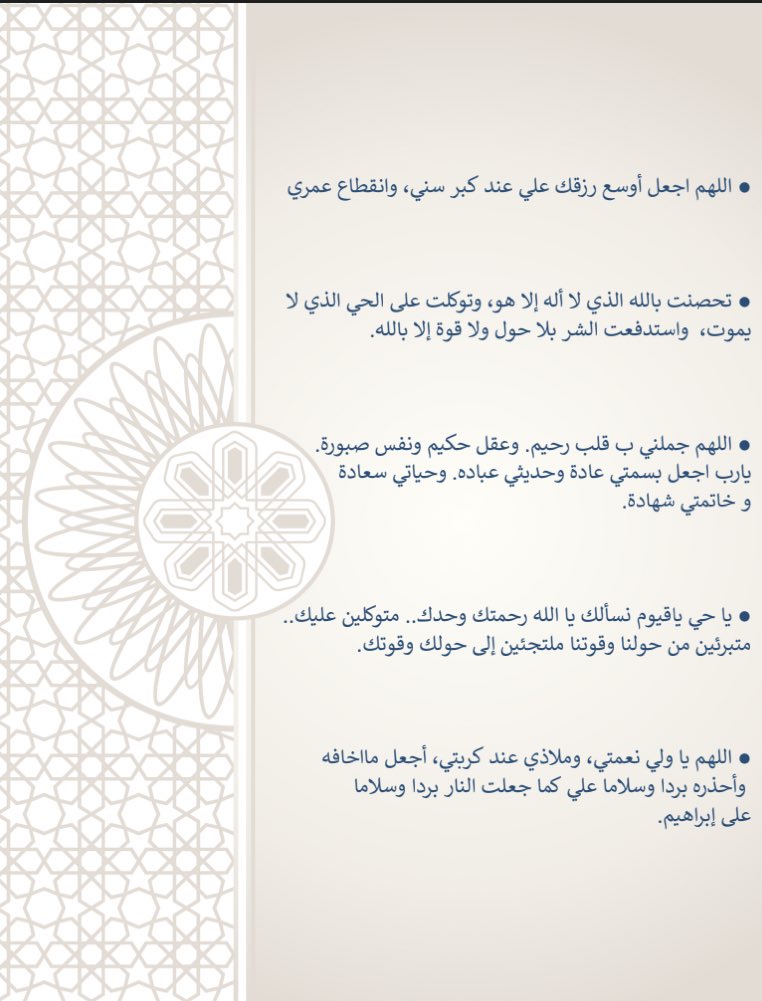 ● اللهم اجعل أوسع رزقك علي عند كبر سني، وانقطاع عمري
● تحصنت بالله الذي لا أله إلا هو، وتوكلت على الحي الذي لا
يموت، واستدفعت الشر بلا حول ولا قوة إلا بالله.
● اللهم جملني ب قلب رحيم. وعقل حكيم ونفس صبورة.
يارب اجعل بسمتي عادة وحديثي عباده. وحياتي سعادة
و خاتمتي شهادة.
● يا حي ياقيوم نسألك يا الله رحمتك وحدك.. متوكلين عليك..
متبرئين من حولنا وقوتنا ملتجئين إلى حولك وقوتك.
● اللهم يا ولي نعمتي، وملاذي عند كربتي، أجعل مااخافه
وأحذره بردا وسلاما علي كما جعلت النار بردا وسلاما
على إبراهيم.